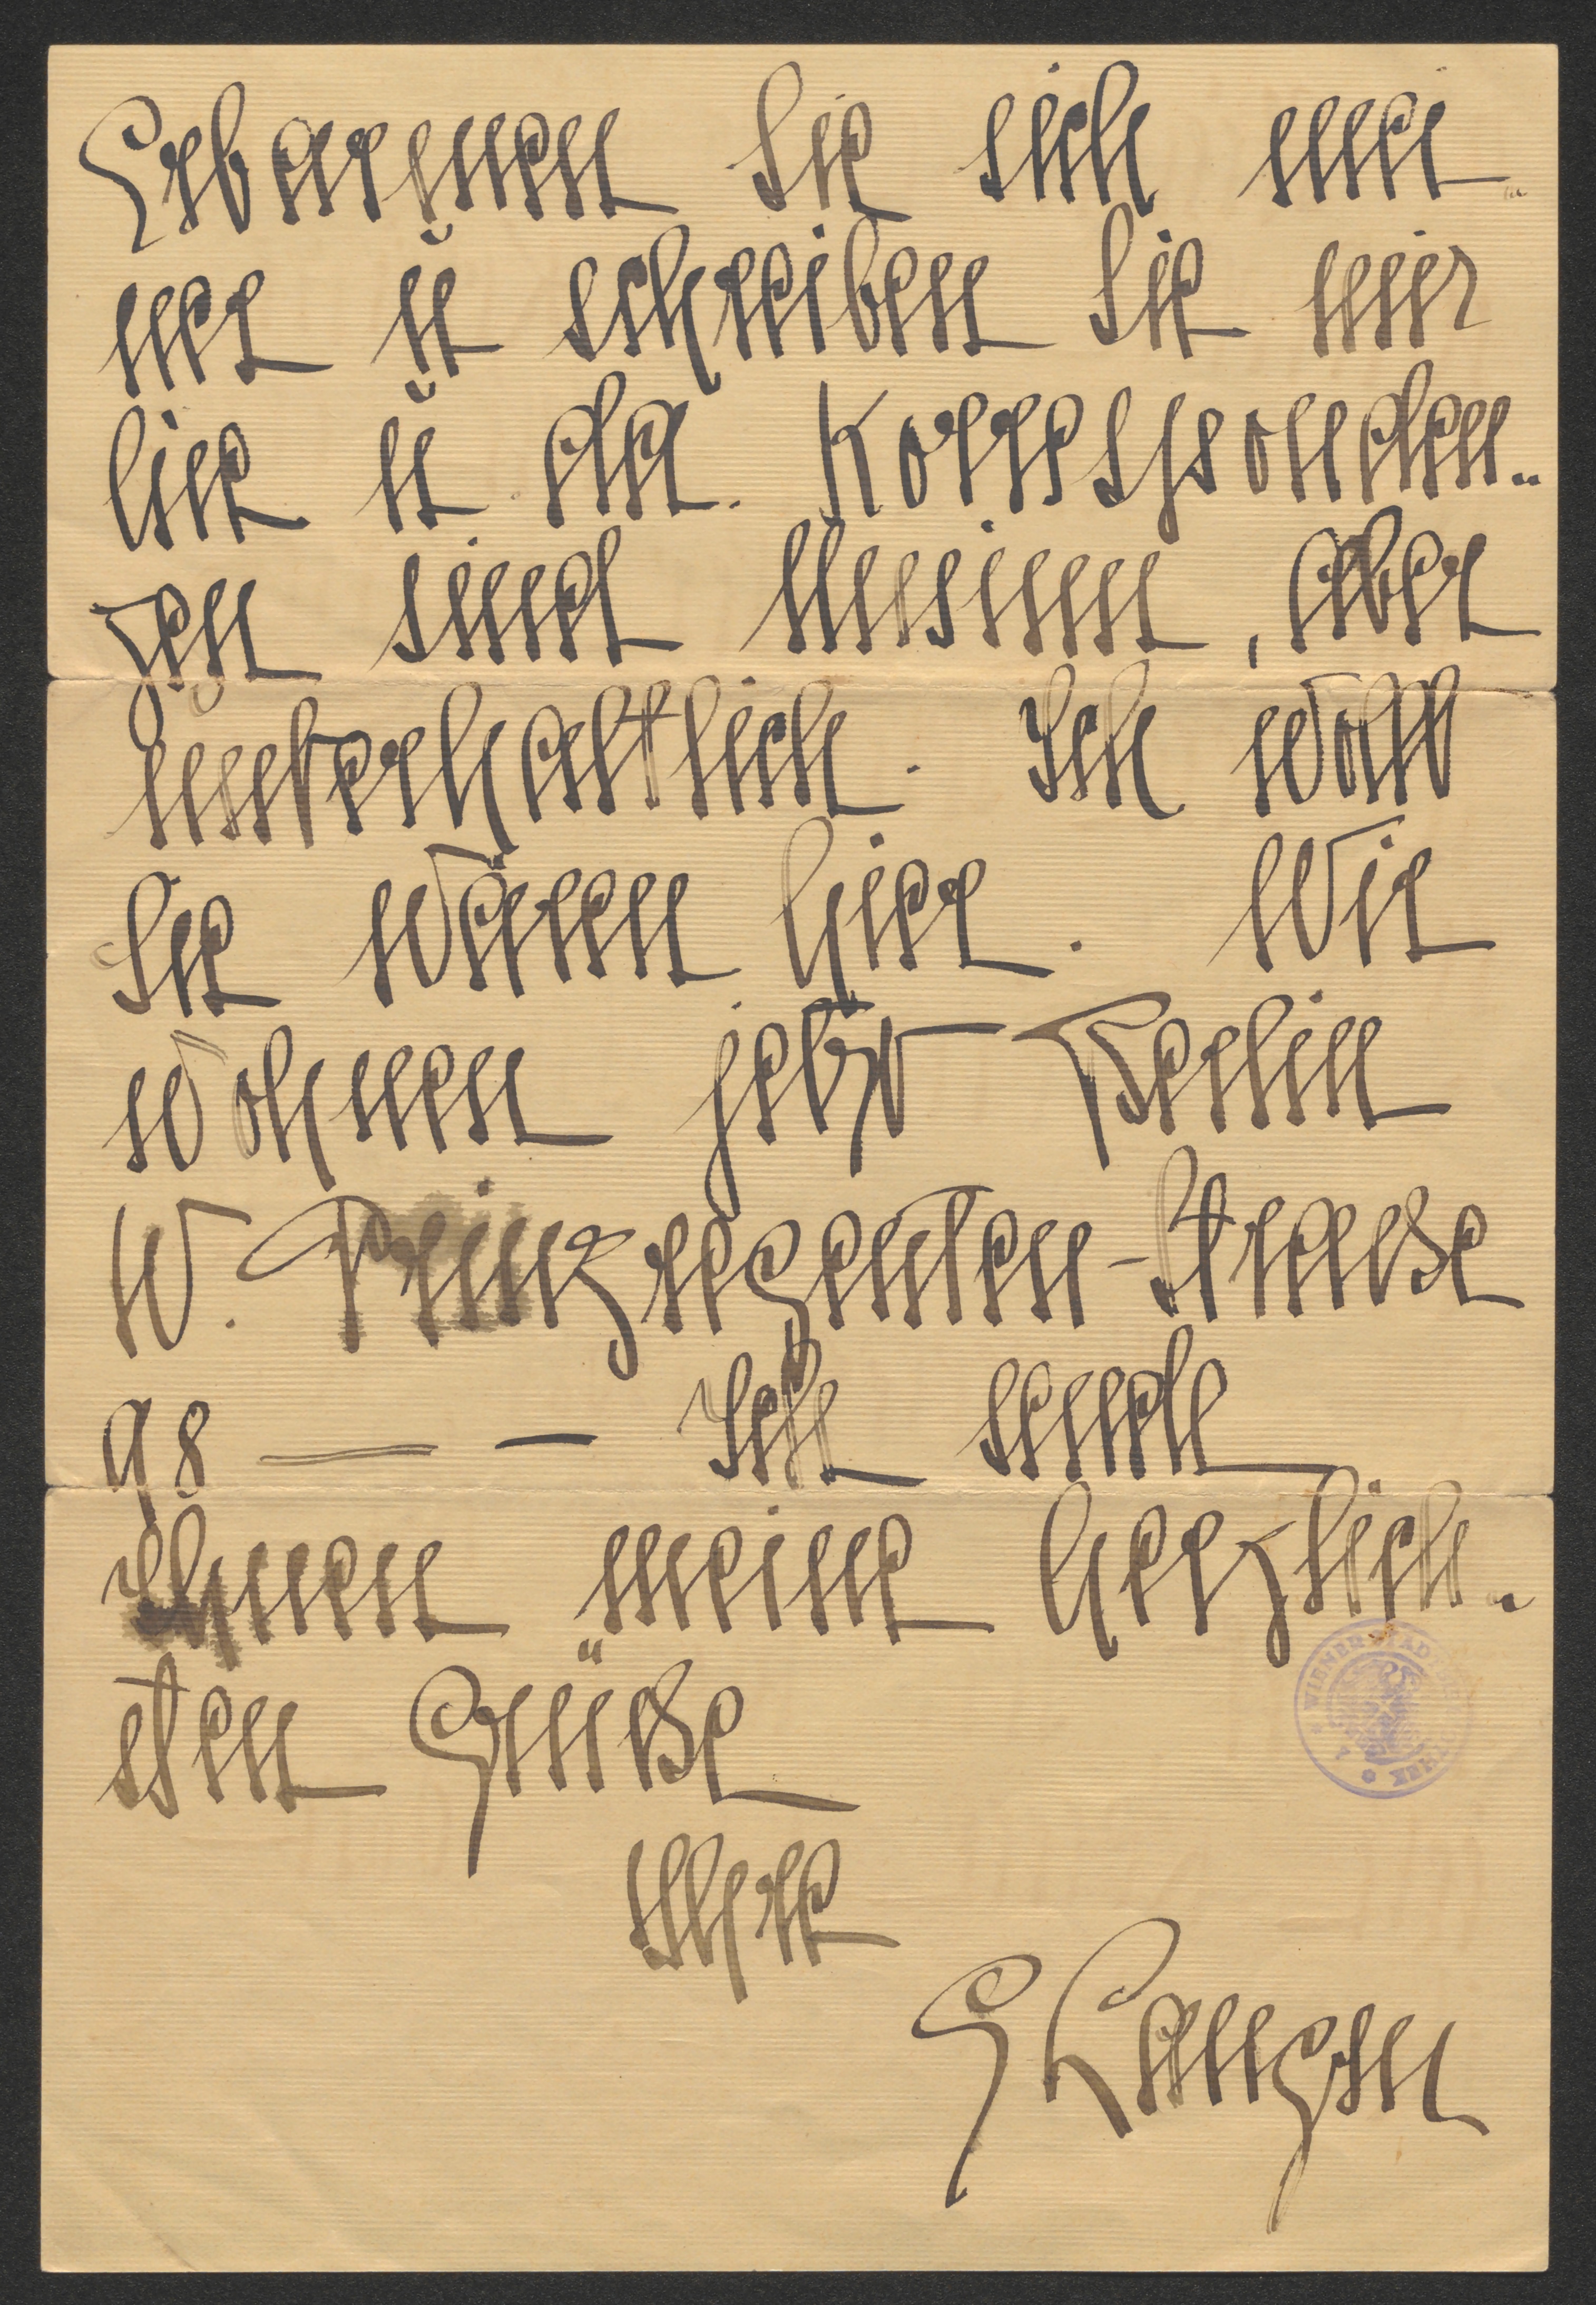 Erbarmen Sie sich mei-
ner u schreiben Sie mir
hie u da. Korresponden-
zen sind Unsinn, aber
unterhaltlich. Ich wollt
Sie wären hier. Wir
wohnen jetzt Berlin
W. Prinzregenten-Straße
98 — — Ich sende
Ihnen meine herzlich-
sten Grüße
WIENER STADTBIBLIOTHEK
Ihre